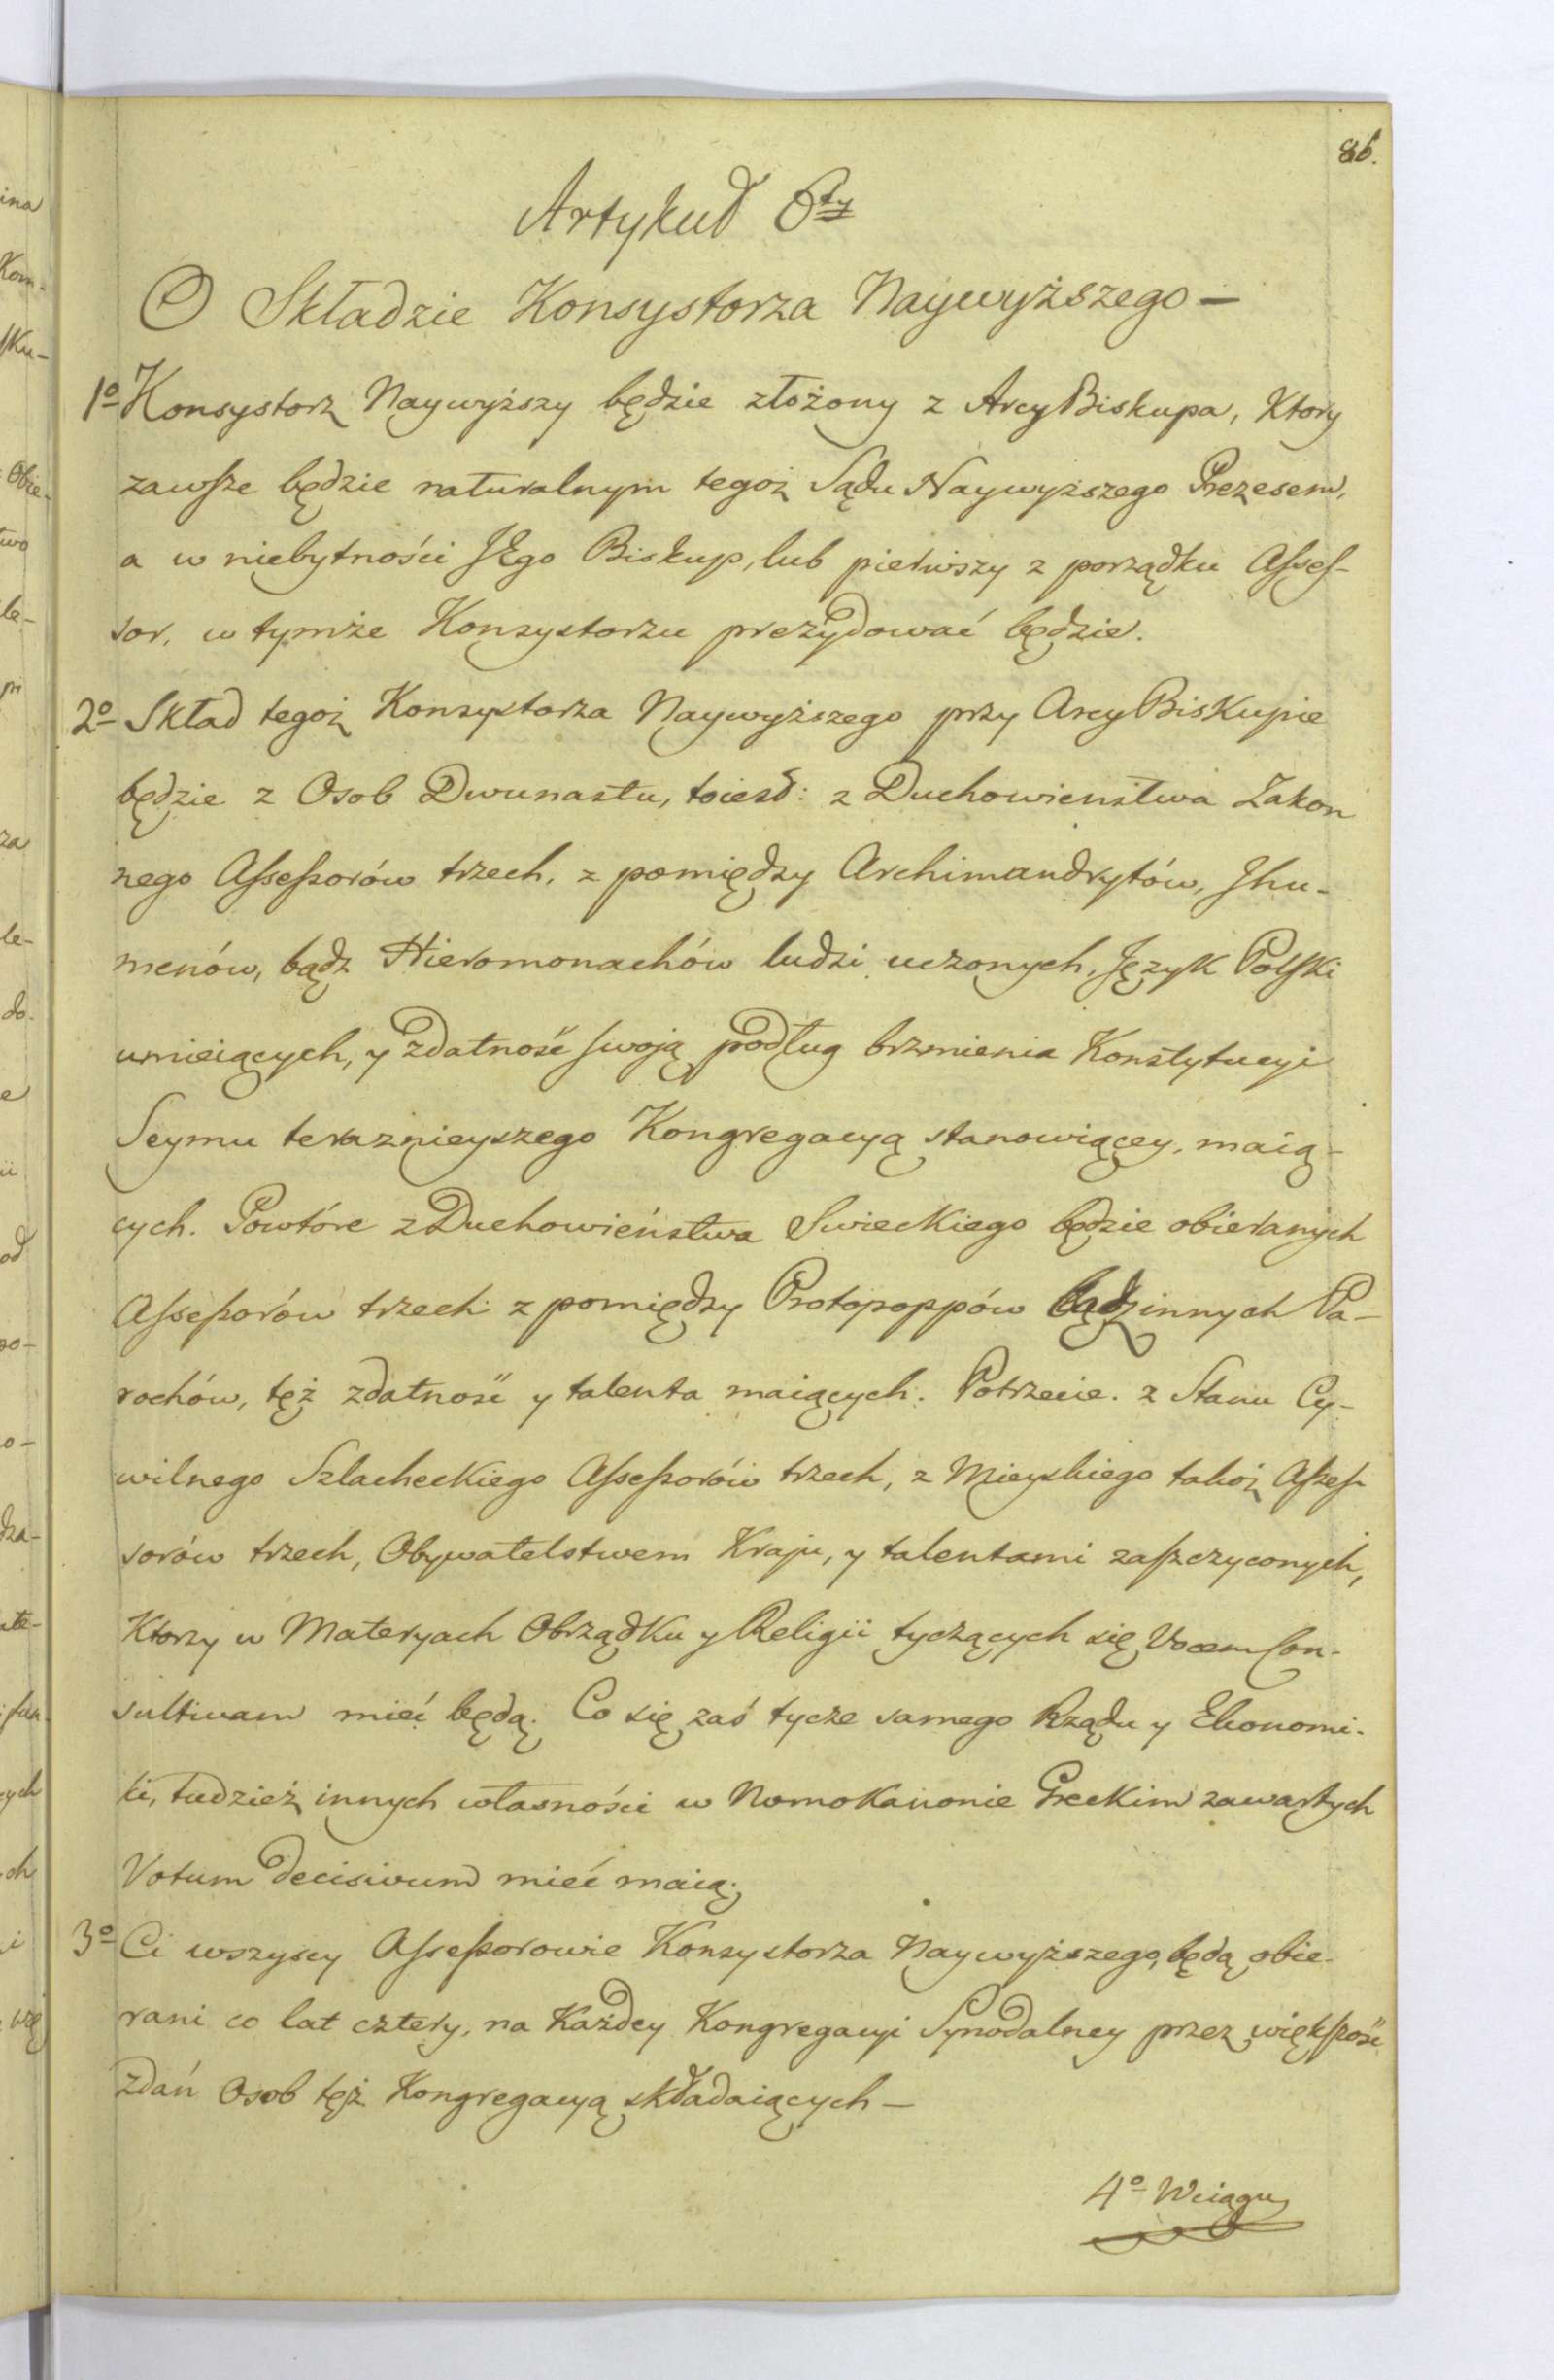 86.
Artykuł 6ty
O Składzie Konsystorza Naywyższego —
1o Konsystorz Naywyższy będzie złożony z ArcyBiskupa, Ktory
zawsze będzie naturalnym tegoż Sądu Naywyższego Prezesem,
a w niebytności JEgo Biskup, lub pierwszy z porządku Asses-
sor, w tymże Konsystorzu prezydować będzie.
2o Skład tegoż Konsystorza Naywyższego przy ArcyBiskupie
będzie z Osob Dwunastu, toiest: z Duchowienstwa Zakon
nego Assessorów trzech, z pomiędzy Archimandrytów, Jhu-
menów, bądz Hieromonachów ludzi uczonych, Język Polski
umieiących, y zdatność swoją podług brzmienia Konstytucyi
Seymu teraznieyszego Kongregacyą stanowiącey, maią-
cych. Powtóre z Duchowieństwa Swieckiego będzie obieranych
Assessorów trzech z pomiędzy Protopoppów bądz innych Pa-
rochów, tęż zdatność y talenta maiących. Potrzecie. z Stanu Cy-
wilnego Szlacheckiego Assessorów trzech, z Mieyskiego takoż Asses-
sorów trzech, Obywatelstwem Kraju, y talentami zaszczyconych,
Ktorzy w Materyach Obrządku y Religii tyczących się Vocem Con-
sultivam mieć będą. Co się zaś tycze samego Rządu y Ekonomi-
ki, tudzież innych własności w Nomokanonie Greckim zawartych
Votum Decisivum mieć maią.
3o Ci wszyscy Assessorowie Konsystorza Naywyższego, będą obie-
rani co lat cztery, na Każdey Kongregacyi Synodalney przez większość
zdań Osob tęż Kongregacyą składaiących —
4o Wciągu